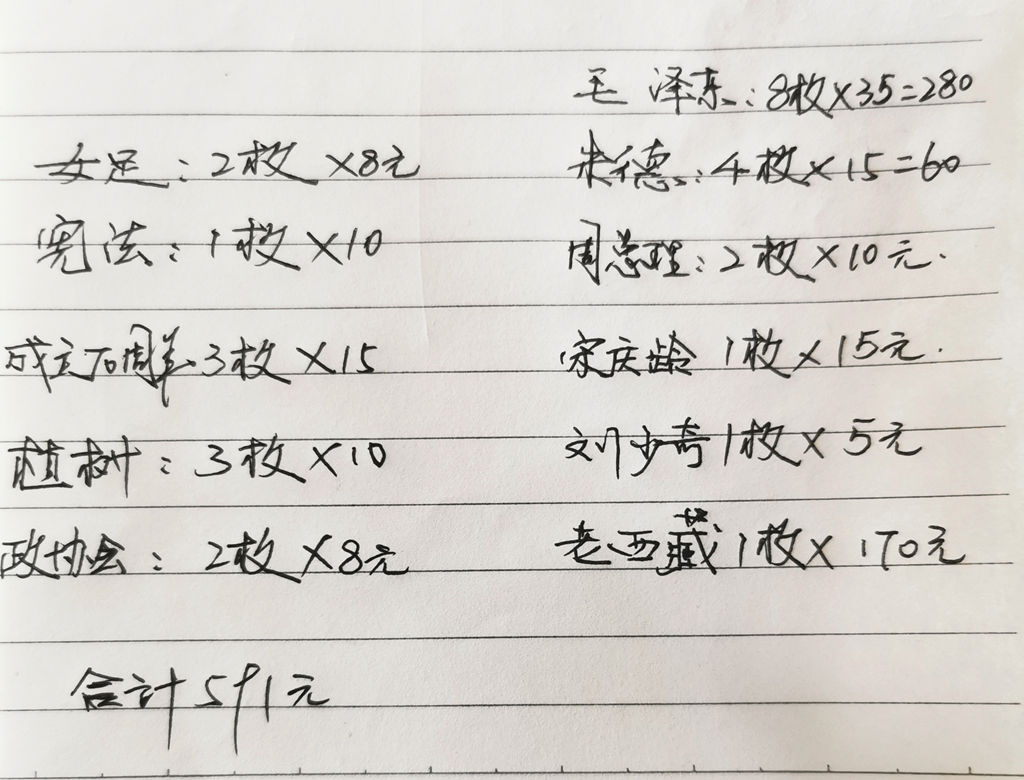 毛泽东:8枚×35=280
女足:2枚×8元
朱德:4枚×15=60
宪法:1枚×10
周总理:2枚×10元.
成立70周年3枚×15
宋庆龄 1枚×15元.
植树:3枚×10
刘少奇1枚×5元
政协会:2枚×8元
老西藏1枚×170元
合计591元